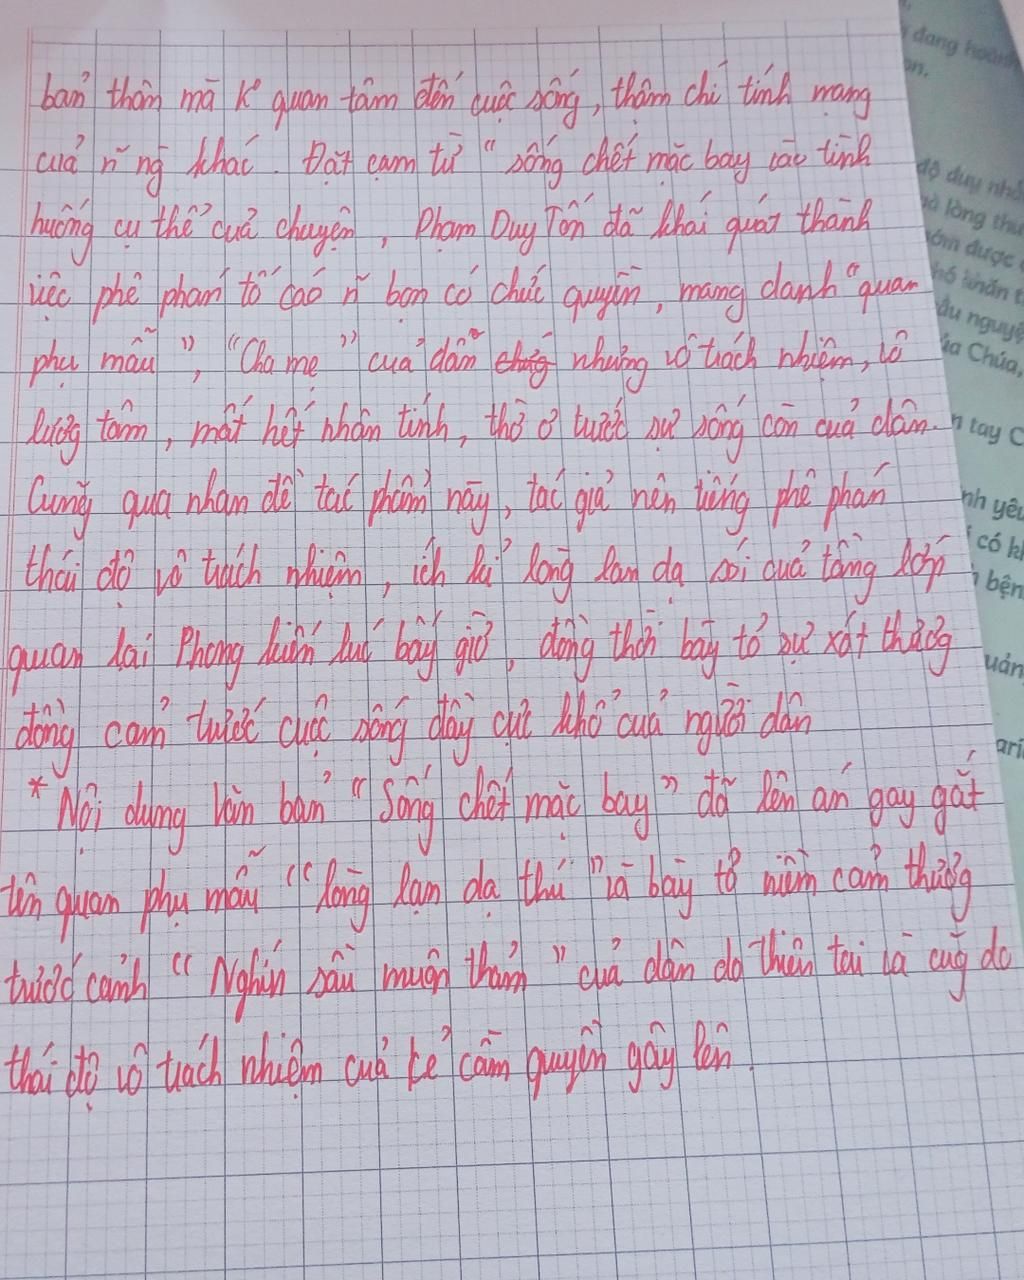 bản thân mà K° quan tâm đến cuộc sống, thậm chí tính mạng
của n~ ng khác. Đặt cạm từ " sống chết mặc bay vào tình
huống cụ thể của chuyện, Phạm Duy Tốn đã khái quát thành
việc phê phán tố cáo n~ bọn có chức quyền, mang danh "quan
phụ mẫu", "Cha mẹ" của dân nhưng vô trách nhiệm, vô
lương tâm, mất hết nhân tính, thờ ơ trước sự sống còn của dân.
Cũng qua nhan đề tác phẩm này, tác giả nên tiếng phê phán
thái độ vô trách nhiệm, ích kỉ lòng lan dạ sói của tầng lớp
quan lại Phong kiến lúc bấy giờ, đồng thời bày tỏ sự xót thương
đồng cảm trước cuộc sống đầy cực khổ của người dân
* Nội dung Văn bản "Sống chết mặc bay" đã lên án gay gắt
tên quan phụ mẫu "lòng lạn dạ thú" và bày tỏ niềm cảm thương
trước cảnh "Nghìn sầu muôn thảm" của dân do thiên tai và cũg do
thái độ vô trách nhiệm của kẻ cầm quyền gây lên.
dang hoàn
on.
độ duy nhấ
à lòng thư
ớm được
hổ nhăn t
ầu nguyệ
ủa Chúa,
n tay C
nh yêu
có kh
bện
uản
ari